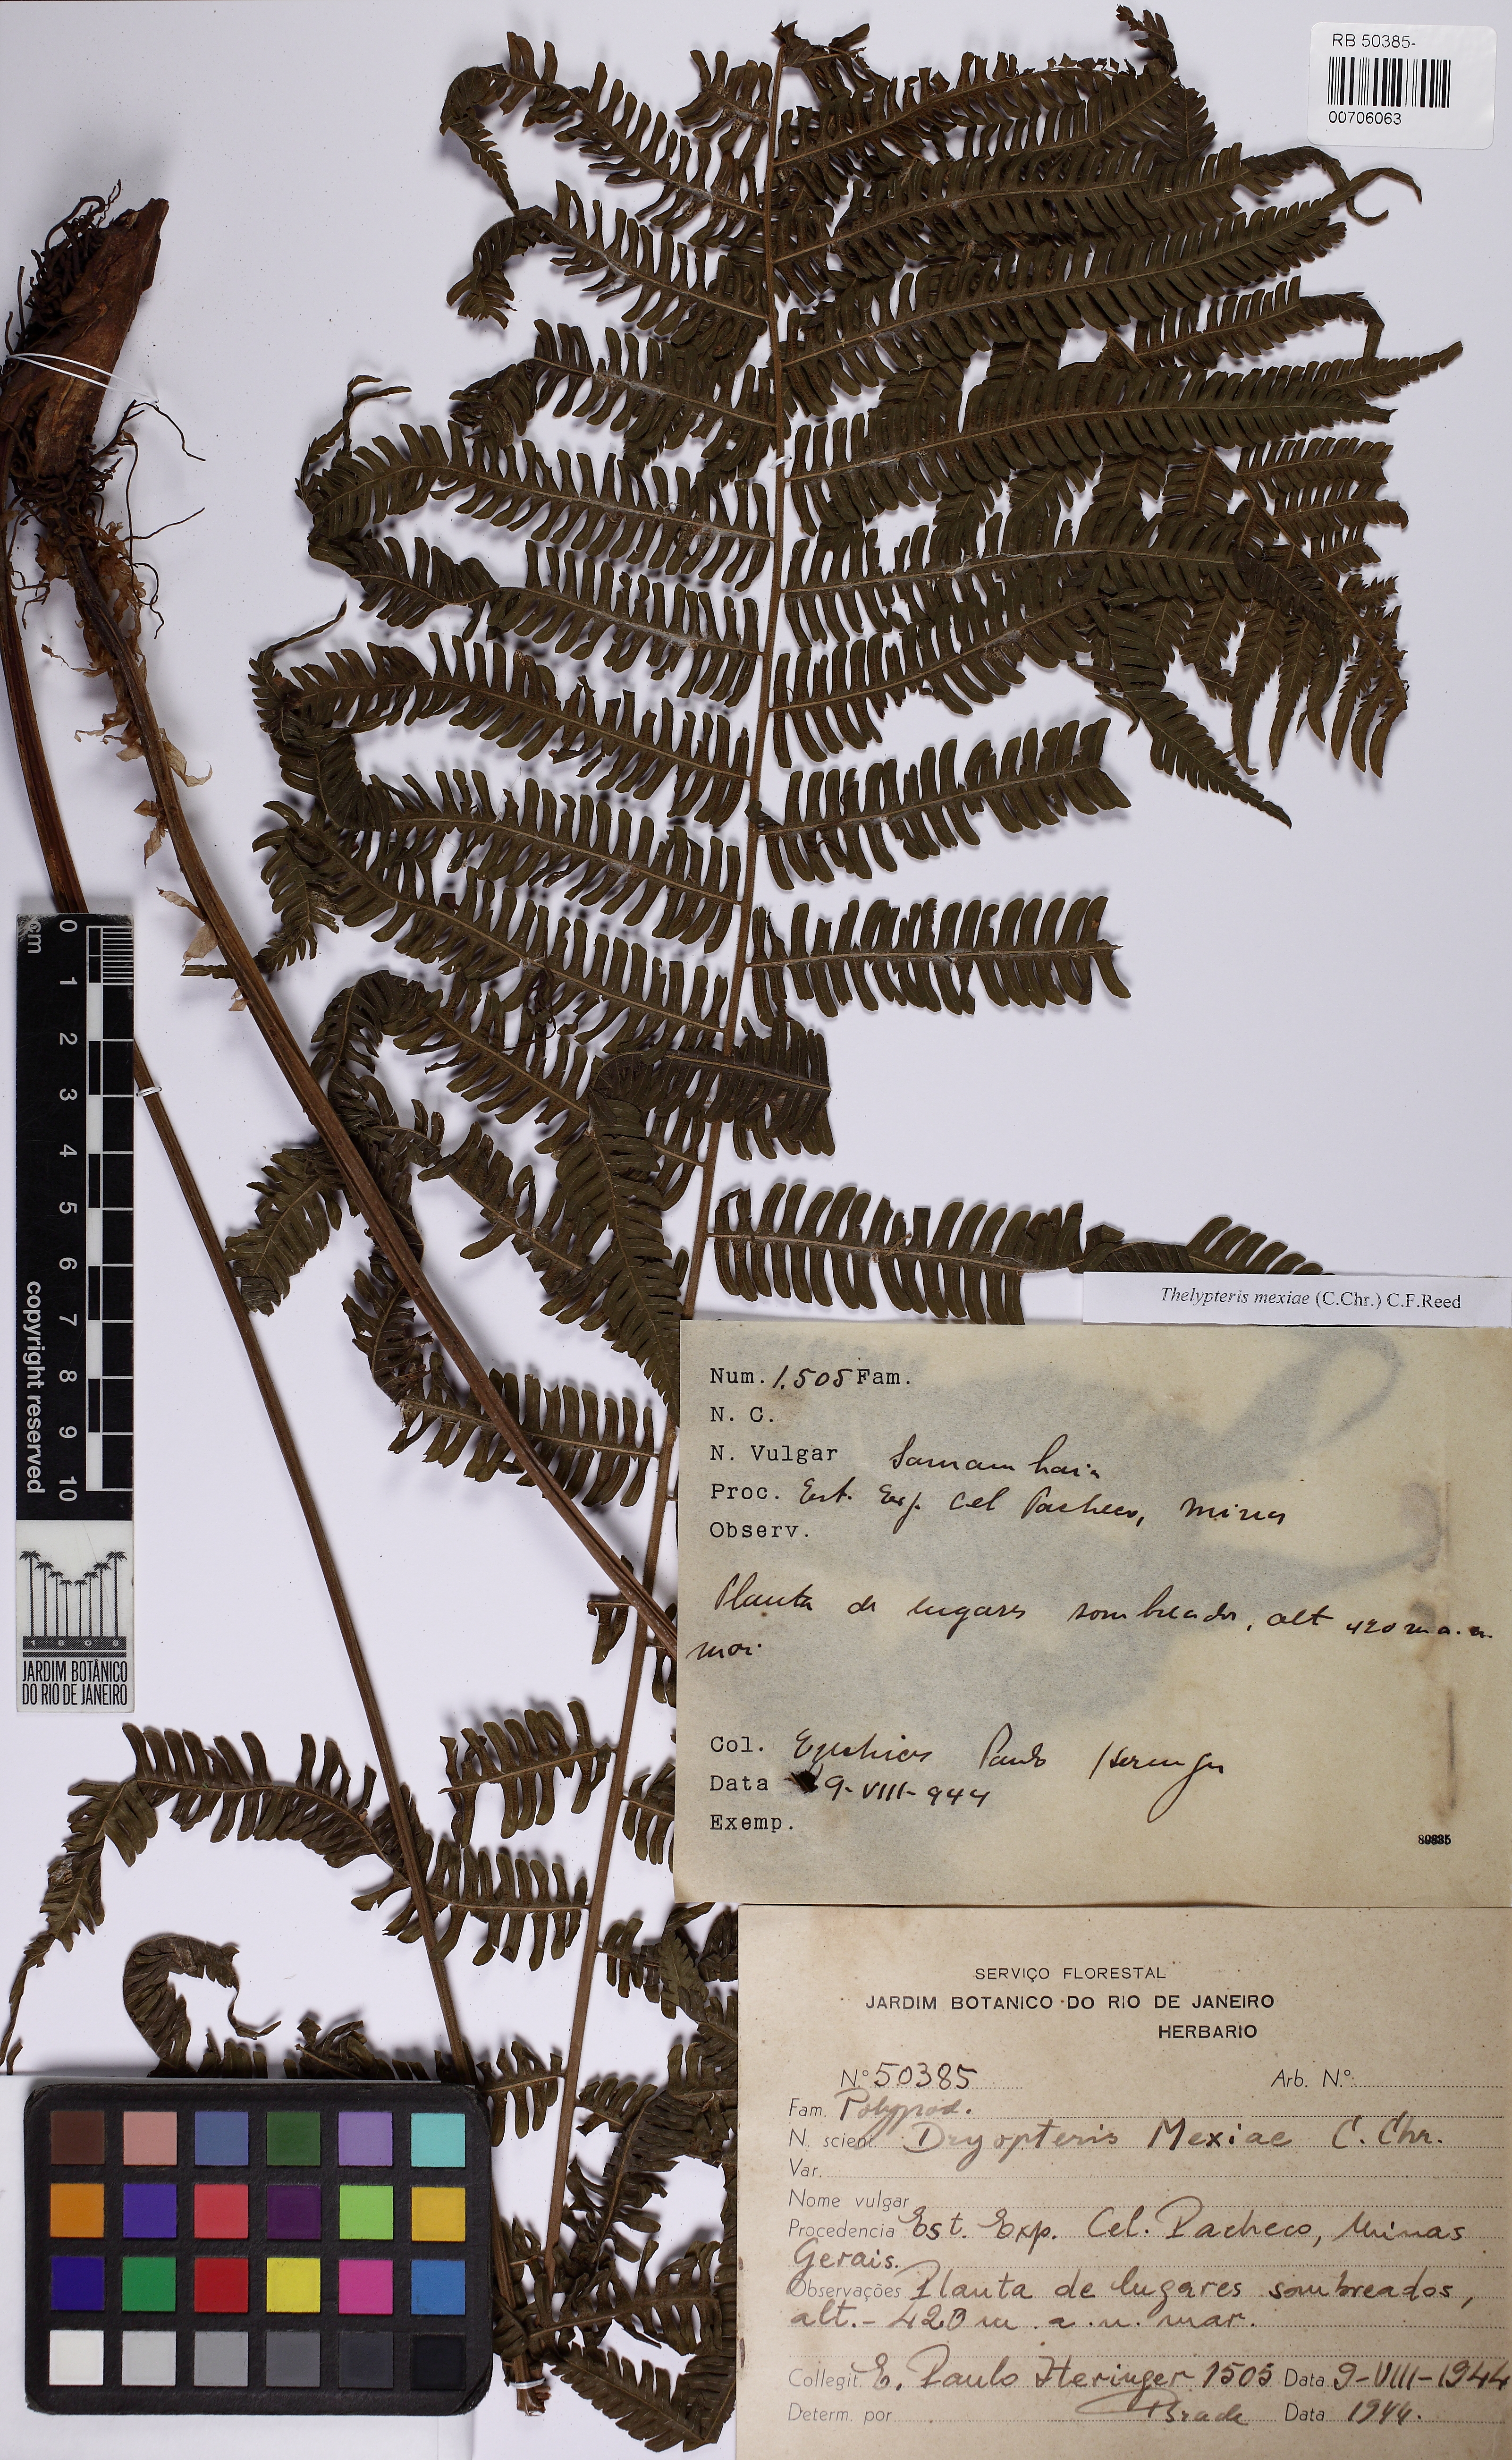 RB 50385-
00706063
cm
0
1
2
3
4
5
6
7
8
9
10
copyright reserved
1808
JARDIM BOTÂNICO
DO RIO DE JANEIRO
Thelypteris mexiae (C.Chr.) C.F.Reed
Num. 1.505 Fam.
N. C.
N. Vulgar Samambaia
Proc. Est. Exp. Cel Pacheco, Minas
Observ.
Planta de lugares sombreados, alt 420 m a. n.
mar.
Col. Ezechias Paulo Heringer
Data 9-VIII-944
Exemp.
SERVIÇO FLORESTAL
JARDIM BOTANICO DO RIO DE JANEIRO
HERBARIO
N.º 50385 Arb. N.º
Fam. Polypod.
N. scient. Dryopteris Mexiae C. Chr.
Var.
Nome vulgar
Procedencia Est. Exp. Cel. Pacheco, Minas
Gerais.
Observações Planta de lugares sombreados,
alt.- 420 m. a. n. mar.
Collegit. E. Paulo Heringer 1505 Data 9-VIII-1944
Determ. por Brade Data 1944.